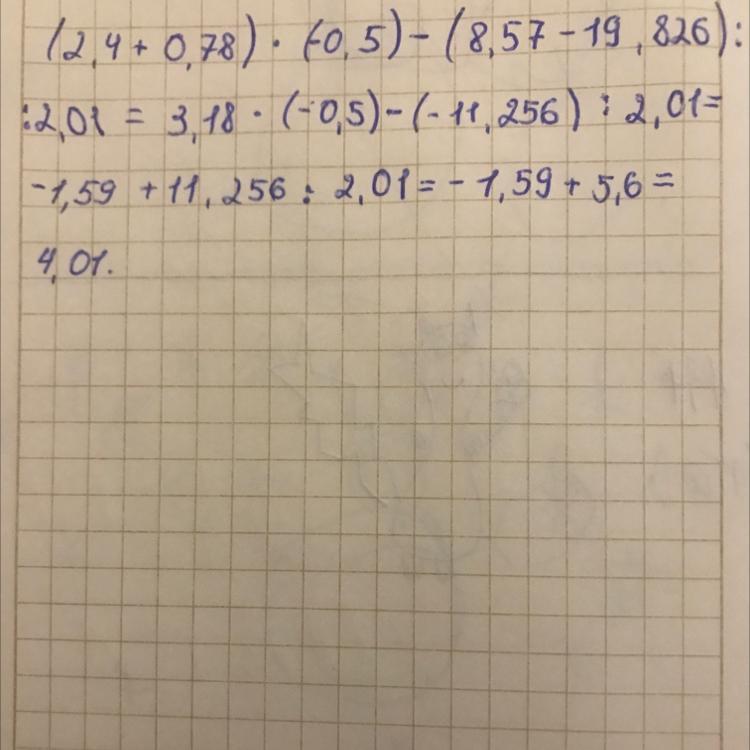 (2,4 + 0,78) · (-0,5) - (8,57 - 19,826) :
: 2,01 = 3,18 · (-0,5) - (-11,256) : 2,01 =
-1,59 + 11,256 : 2,01 = -1,59 + 5,6 =
4,01.